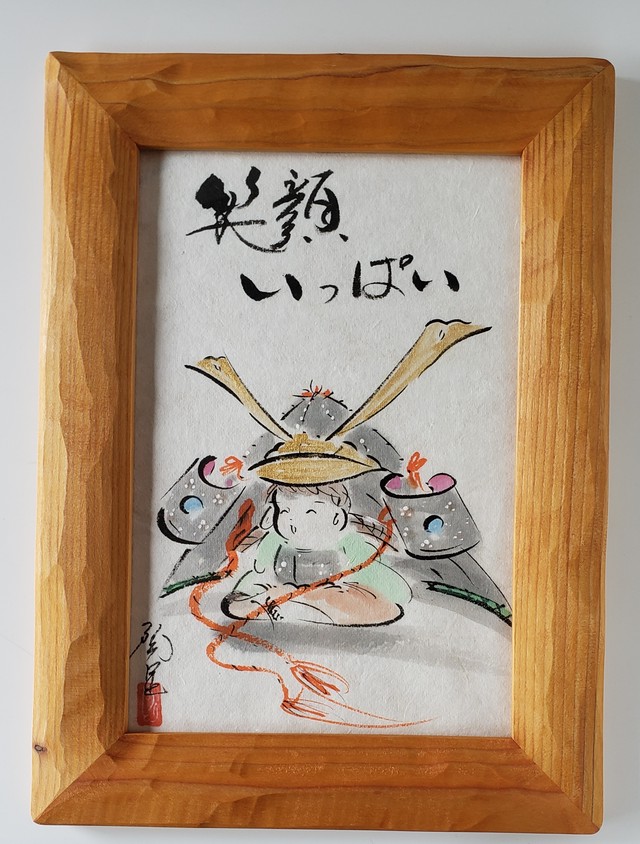 笑顔
いっぱい